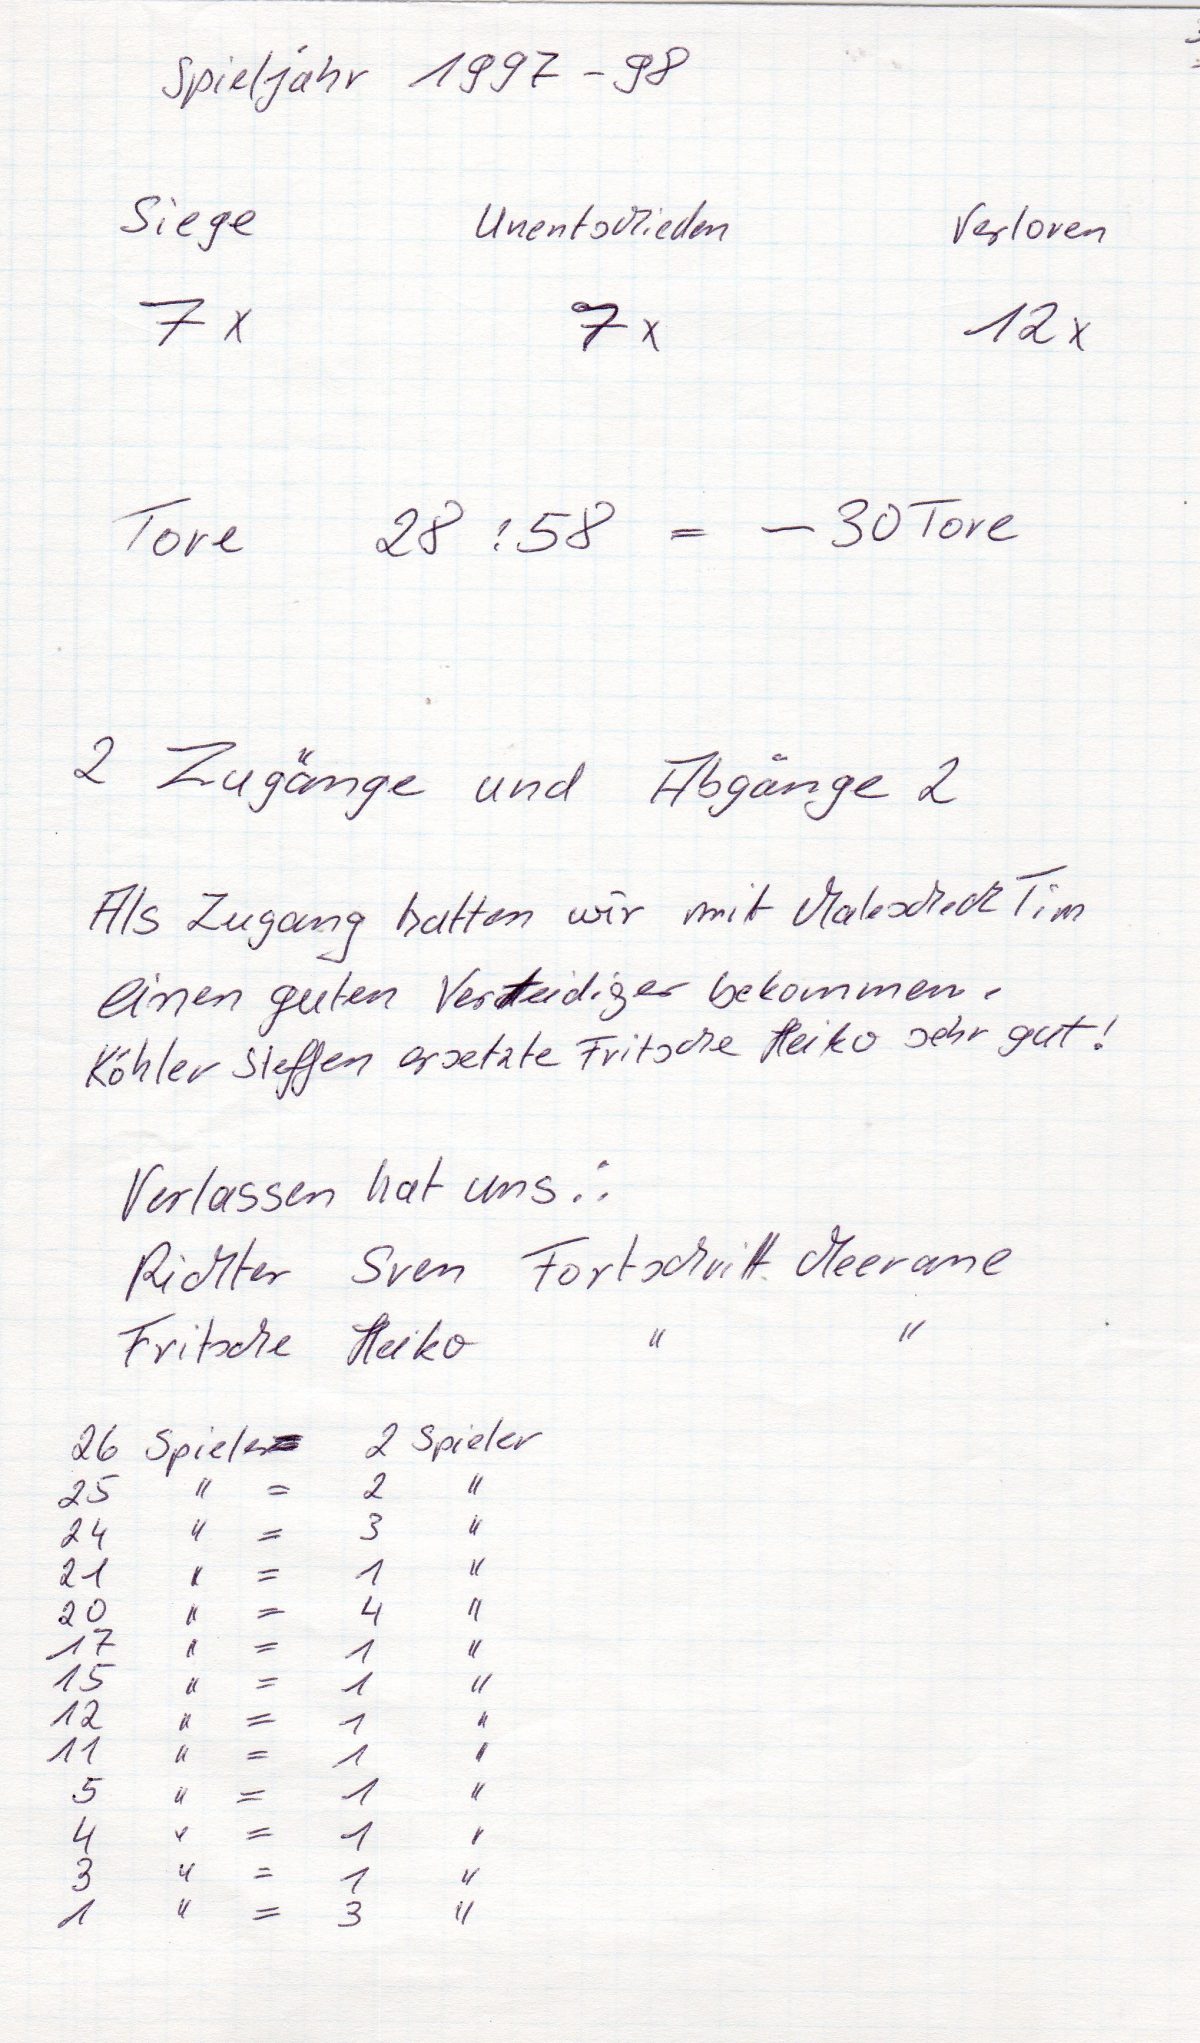 Spieljahr 1997-98
Siege Unentschieden Verloren
7x 7x 12x
Tore 28:58 = -30 Tore
2 Zugänge und Abgänge 2
Als Zugang hatten wir mit Tim
einen guten Verteidiger bekommen.
Köhler Steffen ersetzte Fritsche Heiko sehr gut!
Verlassen hat uns:
Richter Sven Fortschritt Meerane
Fritsche Heiko " "
26 Spiele = 2 Spieler
25 " = 2 "
24 " = 3 "
21 " = 1 "
20 " = 4 "
17 " = 1 "
15 " = 1 "
12 " = 1 "
11 " = 1 "
5 " = 1 "
4 " = 1 "
3 " = 1 "
1 " = 3 "